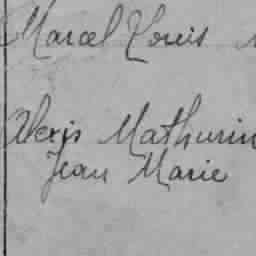 Marcel Louis
Alexis Mathurin
Jean Marie